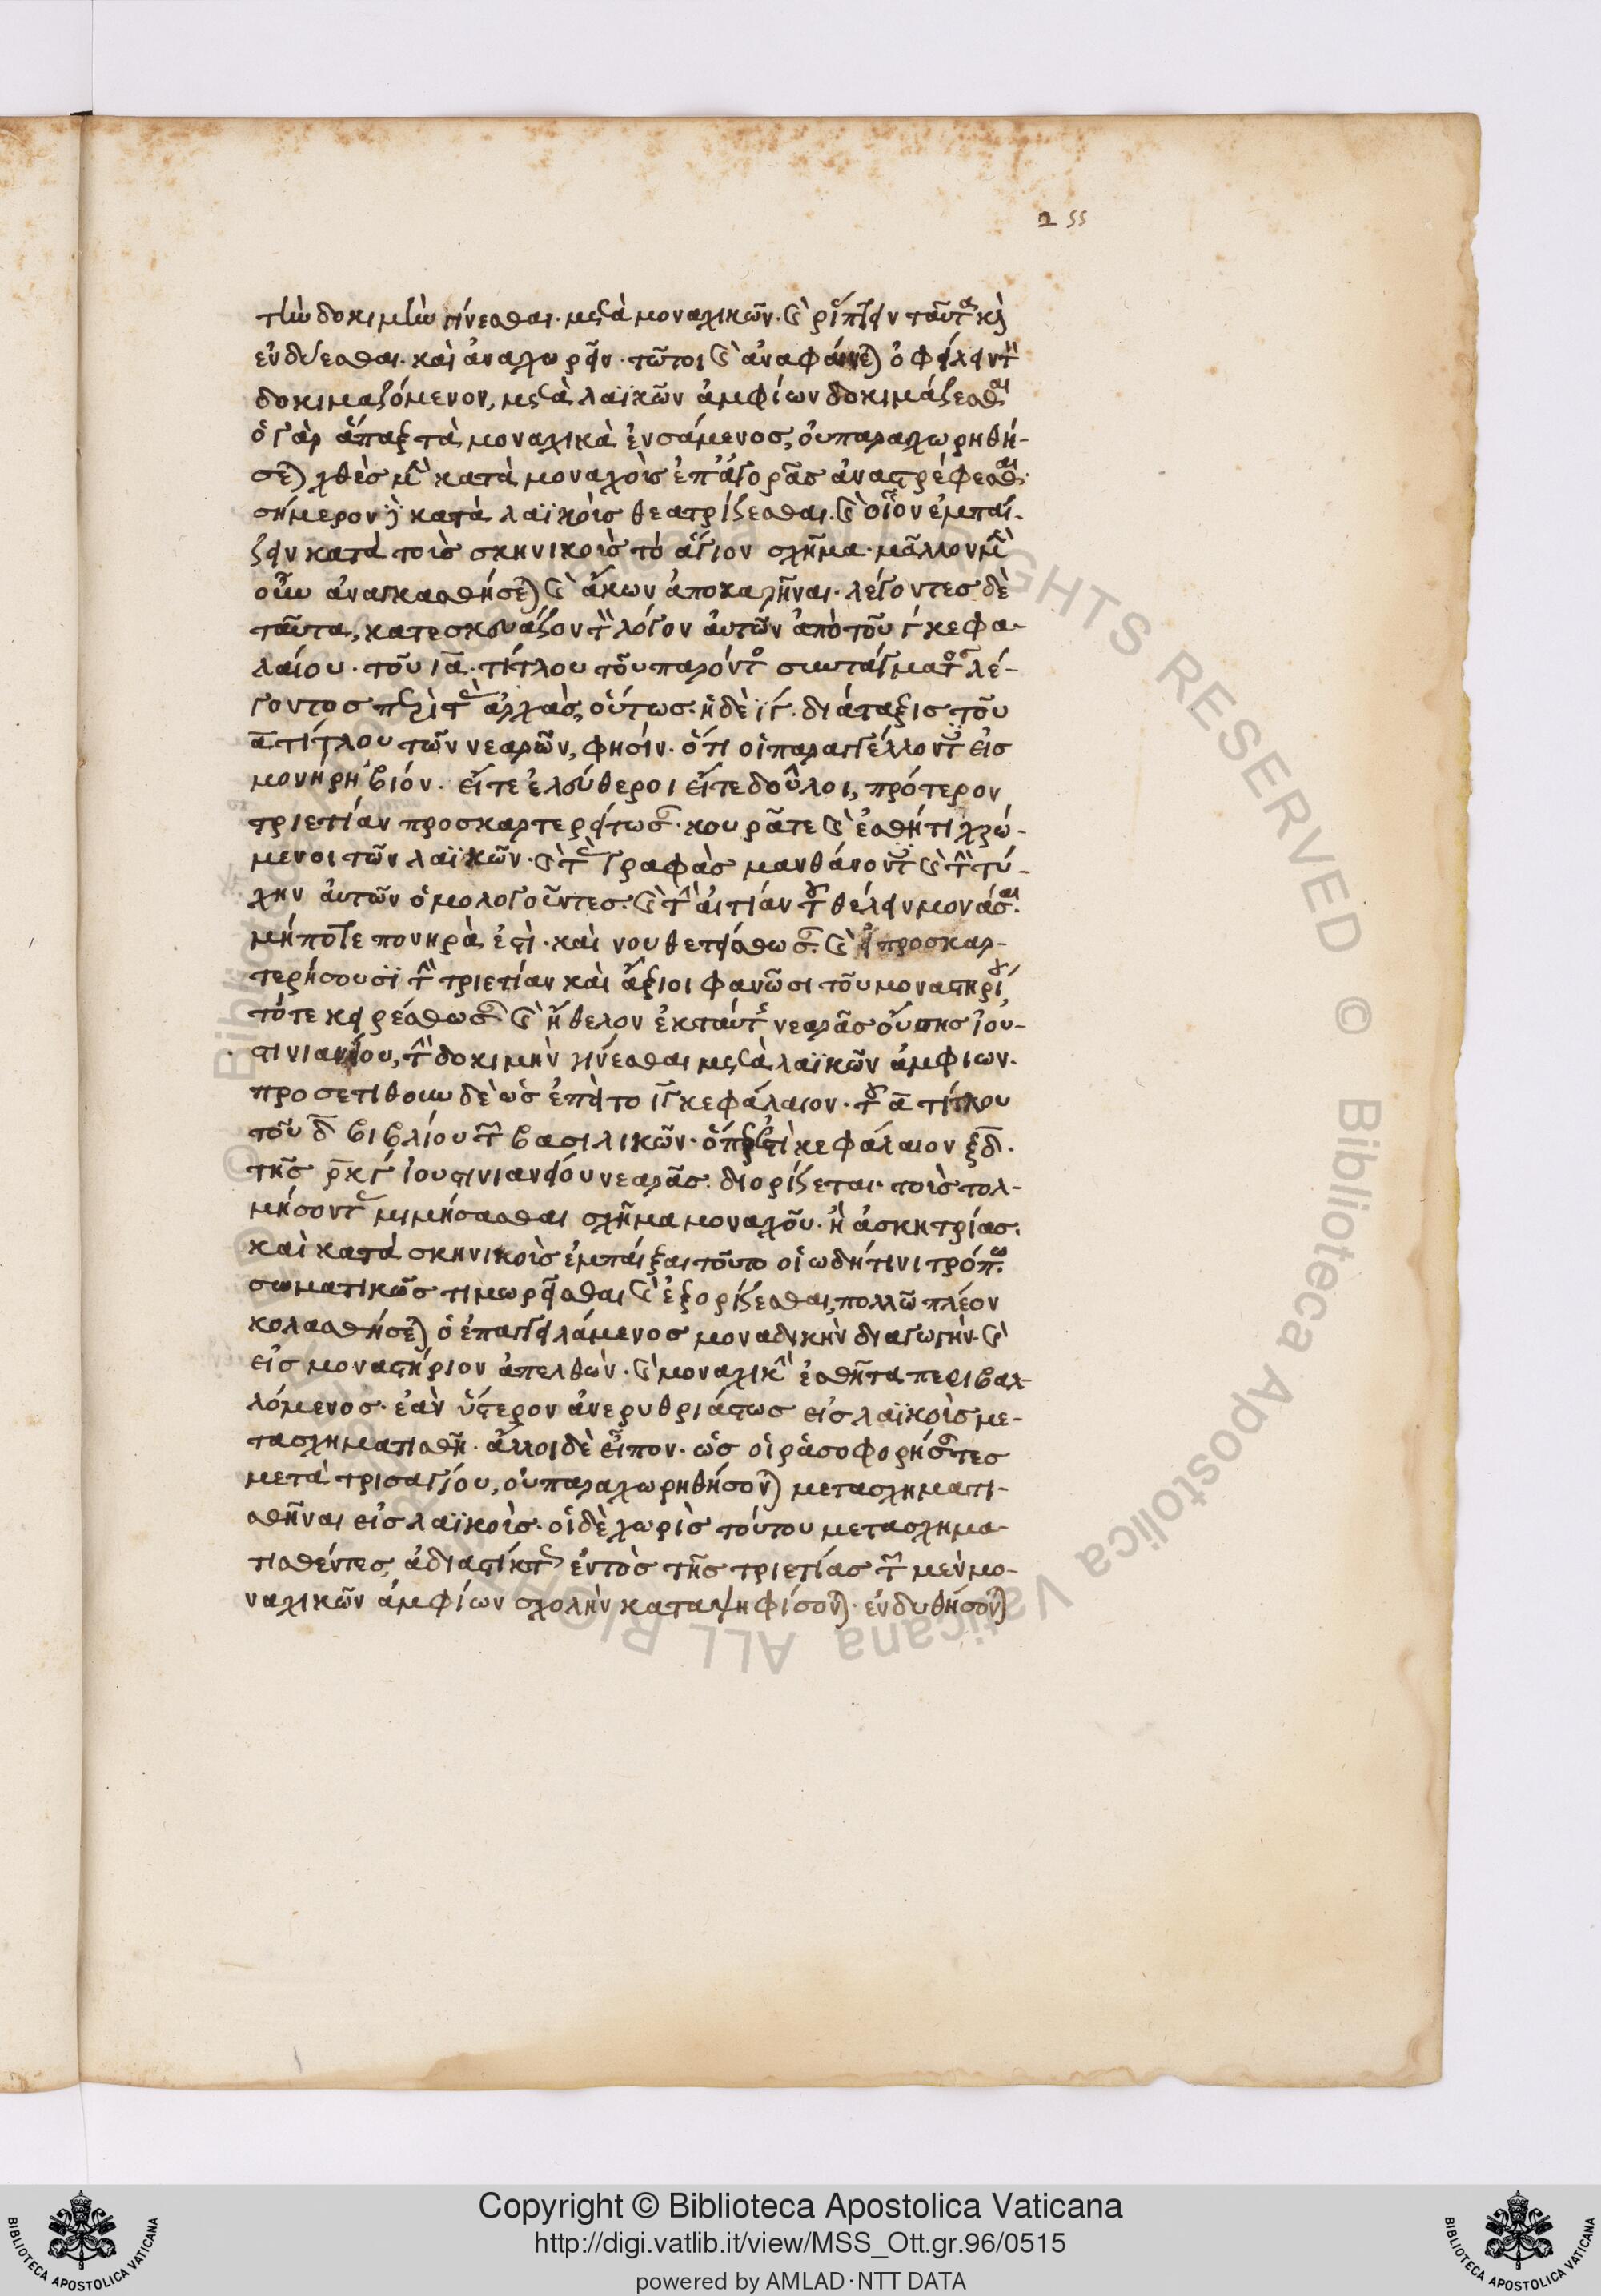 255
τὴν δοκιμὴν γίνεσθαι· μετὰ μοναχικῶν· καὶ ῥίπτειν ταῦτα καὶ
ἐνδύεσθαι· καὶ ἀναχωρεῖν· τούτοις καὶ ἀναφαίνεται ὀφείλειν τὸν
δοκιμαζόμενον, μετὰ λαϊκῶν ἀμφίων δοκιμάζεσθαι
ὁ γὰρ ἅπαξ τὰ μοναχικὰ ἐνσάμενος, οὐ παραχωρηθή-
σεται χθὲς μὲν κατὰ μοναχοὺς ἐπ' ἀγορᾶς ἀναστρέφεσθαι·
σήμερον δὲ κατὰ λαϊκοὺς θεατρίζεσθαι· καὶ οἷον ἐμπαί-
ζειν κατὰ τοὺς σκηνικοὺς τὸ ἅγιον σχῆμα· μᾶλλον μὲν
οὖν ἀναγκασθήσεται καὶ ἄκων ἀποκαρῆναι· λέγοντες δὲ
ταῦτα, κατεσκεύαζον τὸν λόγον αὐτῶν ἀπὸ τοῦ γ κεφα-
λαίου· τοῦ ια· τίτλου τοῦ παρόντος συντάγματος λέ-
γοντος περὶ τὰς ἀρχὰς, οὕτως· ἡ δὲ ιγ· διάταξις τοῦ
α τίτλου τῶν νεαρῶν, φησίν· ὅτι οἱ παραγγέλλοντες εἰς
μονήρη βιόν· εἴτε ἐλεύθεροι εἴτε δοῦλοι, πρότερον
τριετίαν προσκαρτερείτωσαν· κουρᾶτε καὶ ἐσθῆτι χρώ-
μενοι τῶν λαϊκῶν· καὶ τὰς γραφὰς μανθάνοντες καὶ τὴν τύ-
χην αὐτῶν ὁμολογοῦντες· καὶ τὴν αἰτίαν τοῦ θέλειν μονάσαι·
μήποτε πονηρὰ ἐστὶ· καὶ νουθετείσθωσαν· καὶ εἰ προσκαρ-
τερήσουσι τὴν τριετίαν καὶ ἄξιοι φανῶσι τοῦ μοναστηρίου,
τότε κειρέσθωσαν· καὶ ἤθελον ἐκ ταύτης νεαρᾶς οὔσης ἰου-
στινιανείου, τὴν δοκιμὴν γίνεσθαι μετὰ λαϊκῶν ἀμφιων·
προσετίθουν δὲ ὡς ἐπεὶ το ιγ κεφάλαιον· τοῦ α τίτλου
τοῦ δ βιβλίου τῶν βασιλικῶν· ὅπερ ἐστὶ κεφάλαιον ξδ·
τῆς ρκγ ἰουστινιανείου νεαρᾶς· διορίζεται· τοὺς τολ-
μήσοντας μιμήσασθαι σχῆμα μοναχοῦ· ἢ ἀσκητρίας·
καὶ κατὰ σκηνικοὺς ἐμπαίξαι τοῦτο οἱωδήτινι τρόπω·
σωματικῶς τιμωρεῖσθαι καὶ ἐξορίζεσθαι, πολλῶ πλέον
κολασθήσεται ὁ ἐπαγγειλάμενος μοναδικὴν διαγωγὴν· καὶ
εἰς μοναστήριον ἀπελθὼν· καὶ μοναχικὴν ἐσθῆτα περιβαλ-
λόμενος· ἐὰν ὕστερον ἀνερυθριάστως εἰς λαϊκοὺς με-
τασχηματισθῆ· ἄλλοι δὲ εἶπον· ὡς οἱ ῥασοφορήσαντες
μετὰ τρισαγίου, οὐ παραχωρηθήσονται μετασχηματι-
σθῆναι εἰς λαϊκοὺς· οἱ δὲ χωρὶς τούτου μετασχημα-
τισθέντες, ἀδιαστίκτως ἐντὸς τῆς τριετίας τῶν μὲν μο-
ναχικῶν ἀμφίων σχολὴν καταψηφίσονται· ἐνδυθήσονται
Copyright © Biblioteca Apostolica Vaticana
http://digi.vatlib.it/view/MSS_Ott.gr.96/0515
powered by AMLAD·NTT DATA